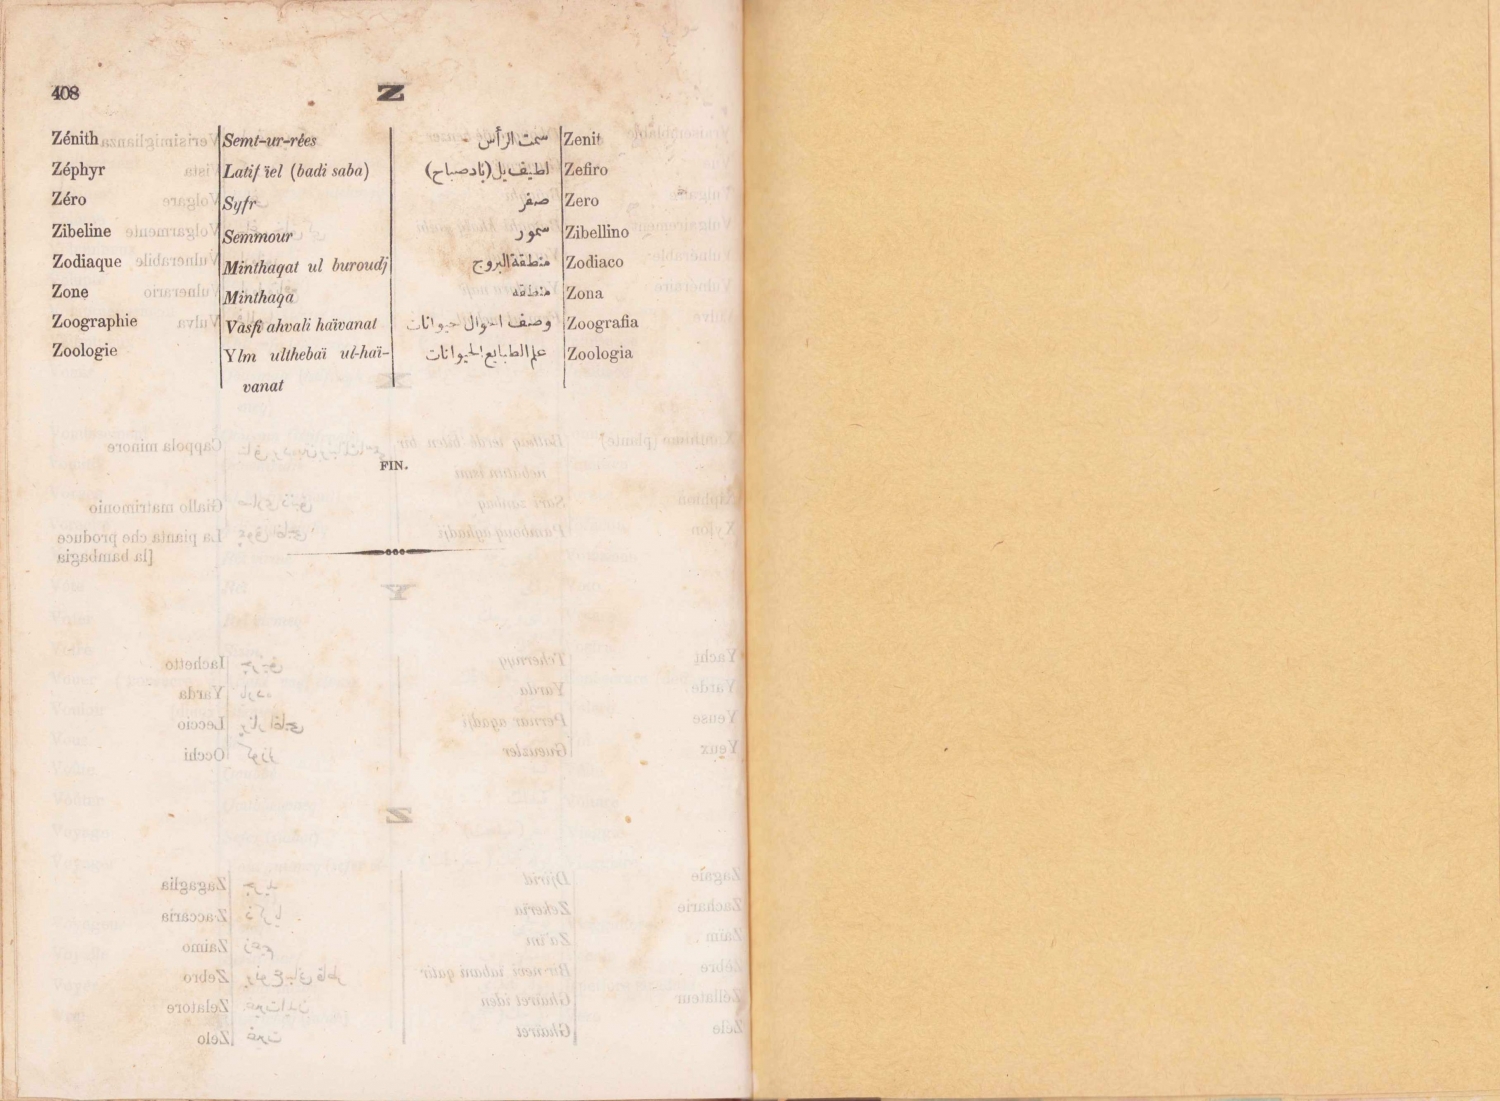 408 Z
Zénith Semt-ur-rées سمت الرأس Zenit
Zéphyr Latif ïel (badi saba) لطيف يل (باد صباح) Zefiro
Zéro Syfr صفر Zero
Zibeline Semmour سمور Zibellino
Zodiaque Minthaqat ul buroudj منطقة البروج Zodiaco
Zone Minthaqa منطقه Zona
Zoographie Vasfi ahvali haïvanat وصف احوال حيوانات Zoografia
Zoologie Ylm ulthebaï ul-haï- علم الطبايع الحيوانات Zoologia
vanat
FIN.